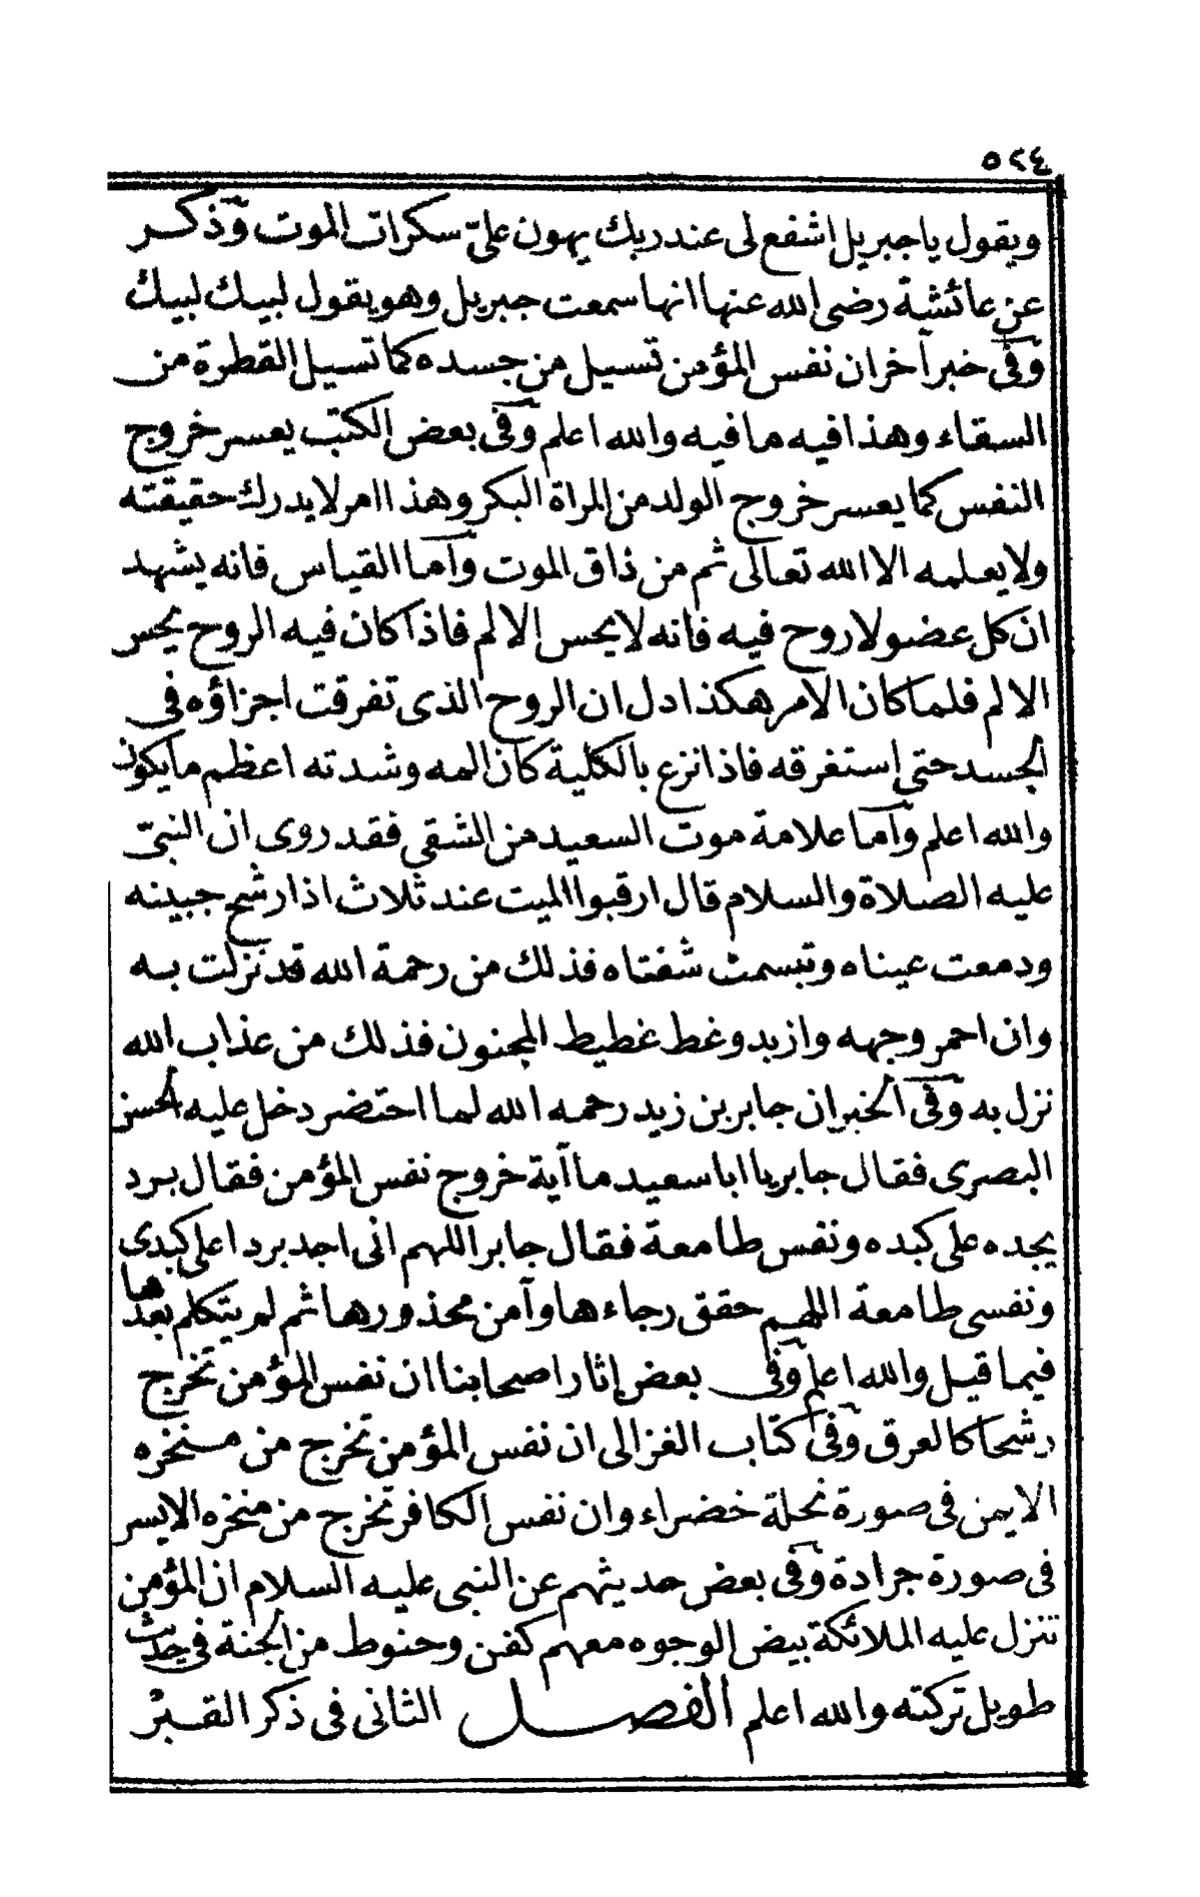 ٥٢٤
ويقول يا جبريل اشفع لى عند ربك يهون علىّ سكرات الموت وذكر
عن عائشة رضى الله عنها انها سمعت جبريل وهو يقول لبيك لبيك
وفى خبر آخر ان نفس المؤمن تسيل من جسده كما تسيل القطرة من
السقاء وهذا فيه ما فيه والله اعلم وفى بعض الكتب يعسر خروج
النفس كما يعسر خروج الولد من المراة البكر وهذا امر لا يدرك حقيقته
ولا يعلمه الا الله تعالى ثم من ذاق الموت وآما القياس فانه يشهد
ان كل عضو لا روح فيه فانه لا يحس الالم فاذا كان فيه الروح يحس
الالم فلما كان الامر هكذا دل ان الروح الذى تفرقت اجزاؤه فى
الجسد حتى استغرقه فاذا نزع بالكلية كان المه وشدته اعظم ما يكون
والله اعلم وآما علامة موت السعيد من الشقى فقد روى ان النبىّ
عليه الصلاة والسلام قال ارقبوا الميت عند ثلاث اذا رشح جبينه
ودمعت عيناه وتبسمت شفتاه فذلك من رحمة الله قد نزلت به
وان احمر وجهه وازبد وغط غطيط المجنون فذلك من عذاب الله
نزل به وفى الخبر ان جابر بن زيد رحمه الله لما احتضر دخل عليه الحسن
البصرى فقال جابر يا ابا سعيد ما آية خروج نفس المؤمن فقال برد
يجده على كبده ونفس طامعة فقال جابر اللهم انى اجد بردا على كبدى
ونفسى طامعة اللهم حقق رجاءها وآمن محذورها ثم لم يتكلم بعدها
فيما قيل والله اعلم وفى بعض اثار اصحابنا ان نفس المؤمن تخرج
رشحا كالعرق وفى كتاب الغزالى ان نفس المؤمن تخرج من منخره
الايمن فى صورة نحلة خضراء وان نفس الكافر تخرج من منخره الايسر
فى صورة جرادة وفى بعض حديثهم عن النبى عليه السلام ان المؤمن
تنزل عليه الملائكة بيض الوجوه معهم كفن وحنوط من الجنة فى حديث
طويل تركته والله اعلم الفصل الثانى فى ذكر القبر